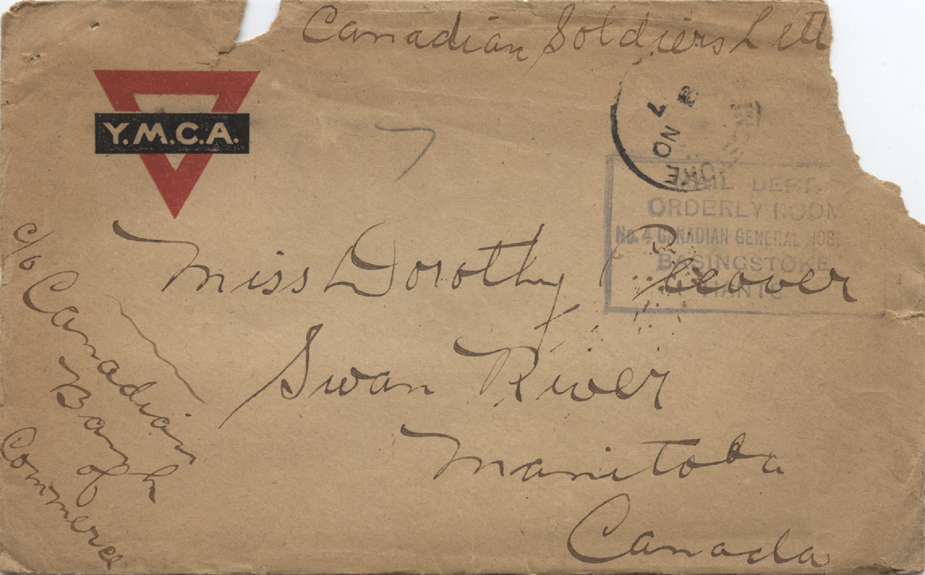 Canadian Soldiers Lett
Y.M.C.A.
7 NO
MAIL DEPT.
ORDERLY ROOM
No. 4 CANADIAN GENERAL HOSP
BASINGSTOKE
HANTS
Miss Dorothy Cleaver
Swan River
Manitoba
Canada
c/o
Canadian
Bank
of
Commerce